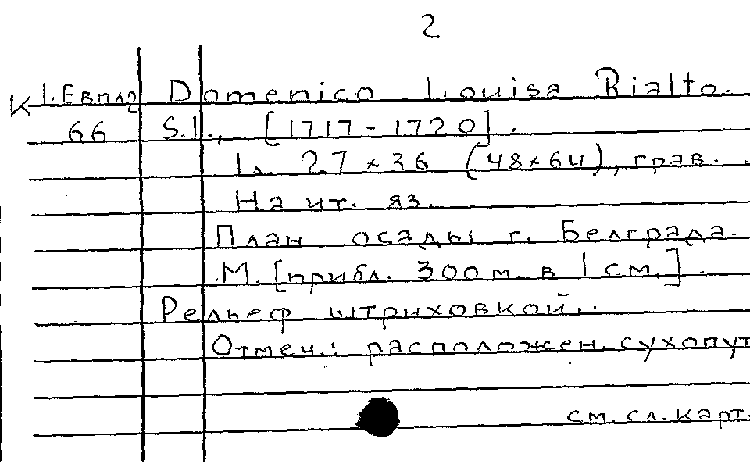 2
К 1.Евпл2 Domenico Louisa Rialto.
66 S.l., [1717-1720].
1л. 27×36 (48×64), грав.
На ит. яз.
План осады г. Белграда.
М. [прибл. 300 м. в 1 см.]
Рельеф штриховкой.
Отмеч.: расположен. сухопут
см. сл. карт.